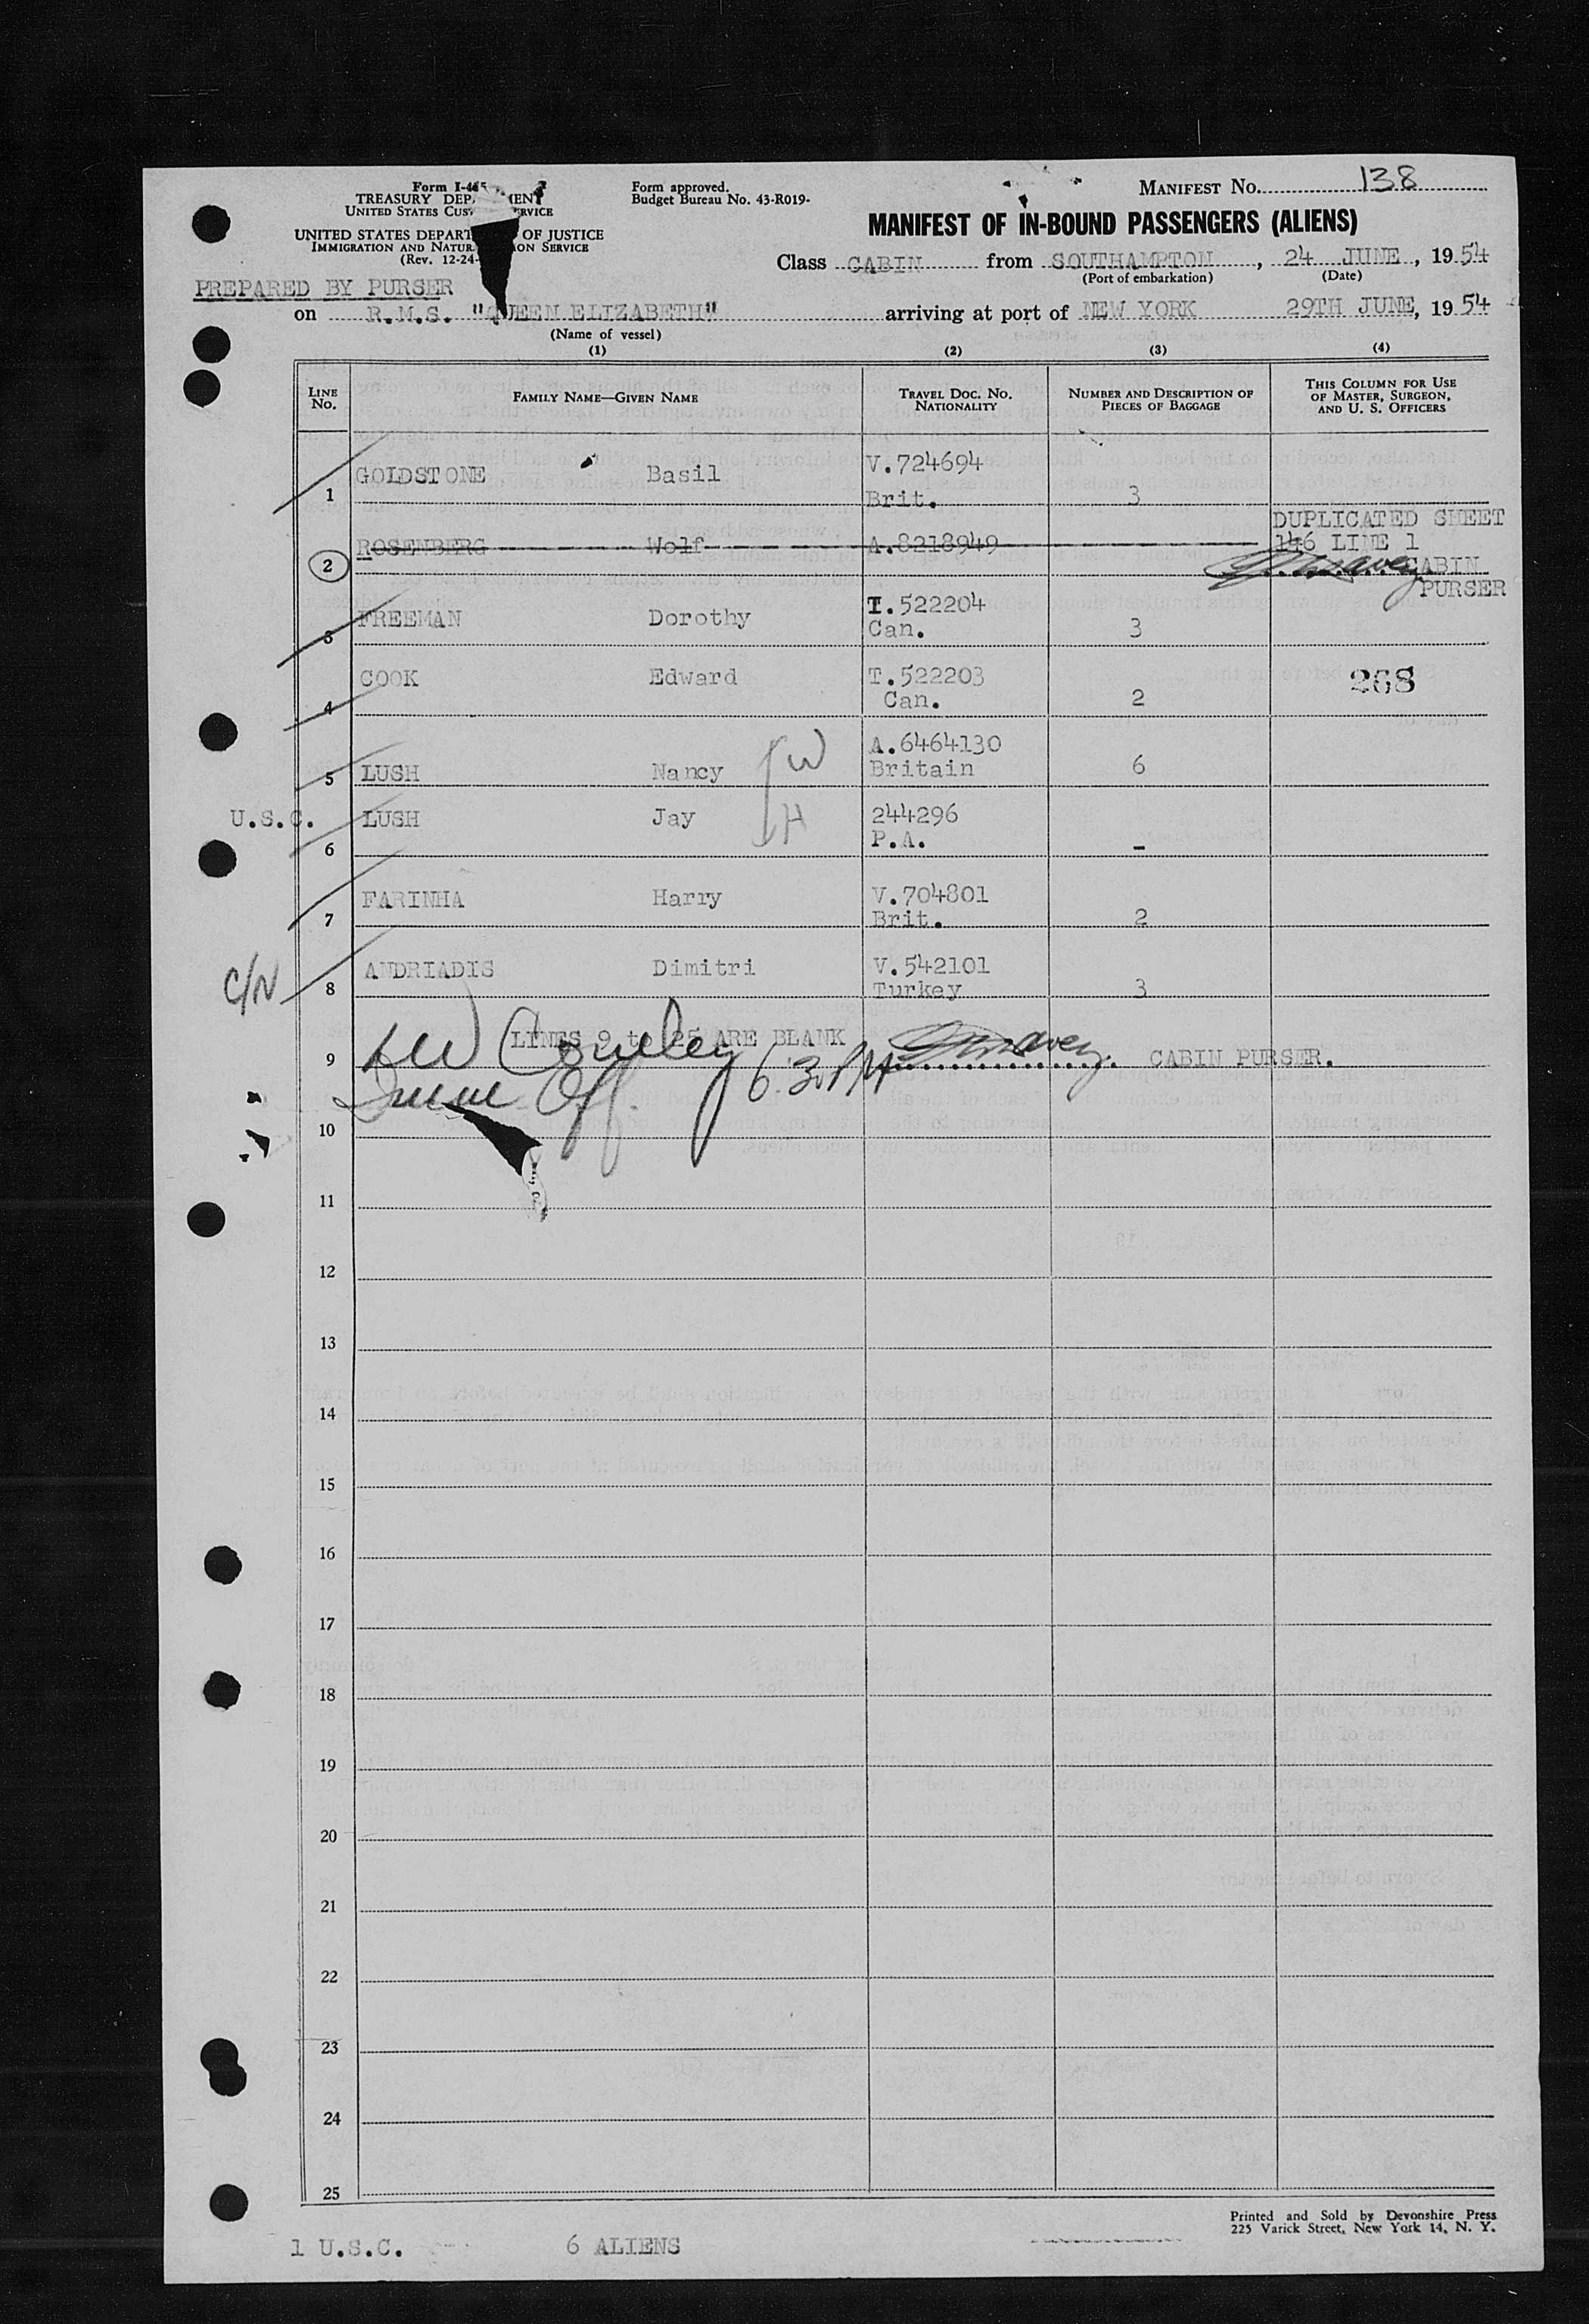 Form I-415
TREASURY DEPARTMENT
UNITED STATES CUSTOMS SERVICE
UNITED STATES DEPARTMENT OF JUSTICE
IMMIGRATION AND NATURALIZATION SERVICE
(Rev. 12-24-
Form approved.
Budget Bureau No. 43-R019-
MANIFEST NO. 138
MANIFEST OF IN-BOUND PASSENGERS (ALIENS)
Class CABIN from SOUTHAMPTON, 24 JUNE, 1954
(Port of embarkation) (Date)
PREPARED BY PURSER
on R.M.S. "QUEEN ELIZABETH" arriving at port of NEW YORK 29TH JUNE, 1954
(Name of vessel)
(1) (2) (3) (4)
LINE NO. FAMILY NAME—GIVEN NAME TRAVEL DOC. NO. NATIONALITY NUMBER AND DESCRIPTION OF PIECES OF BAGGAGE THIS COLUMN FOR USE OF MASTER, SURGEON, AND U. S. OFFICERS
1 GOLDSTONE Basil V.724694 Brit. 3
2 ROSENBERG Wolf A.8218949 DUPLICATED SHEET 146 LINE 1
CABIN PURSER
3 FREEMAN Dorothy T.522204 Can. 3
4 COOK Edward T.522203 Can. 2 268
5 LUSH Nancy W A.6464130 Britain 6
U.S.C. 6 LUSH Jay H 244296 P.A. -
7 FARINHA Harry V.704801 Brit. 2
C/N 8 ANDRIADIS Dimitri V.542101 Turkey 3
LINES 9 to 25 ARE BLANK
9 CABIN PURSER.
Imm Off. 6:30 PM
10
11
12
13
14
15
16
17
18
19
20
21
22
23
24
25
Printed and Sold by Devonshire Press
225 Varick Street, New York 14, N. Y.
1 U.S.C. 6 ALIENS